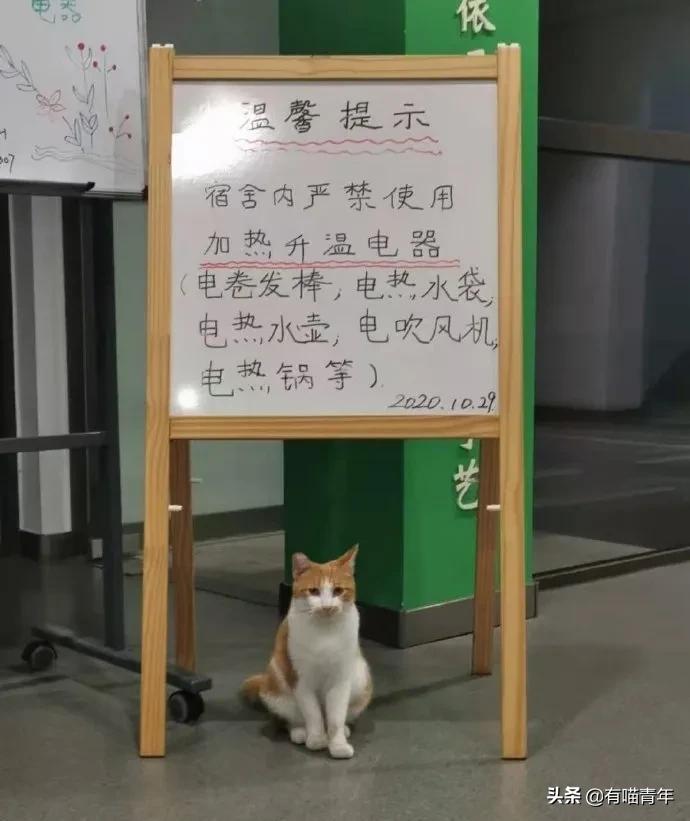 电器
H
307
依
温馨提示
宿舍内严禁使用
加热升温电器
(电卷发棒, 电热水袋,
电热水壶, 电吹风机,
电热锅等).
2020.10.29.
艺
头条 @有喵青年